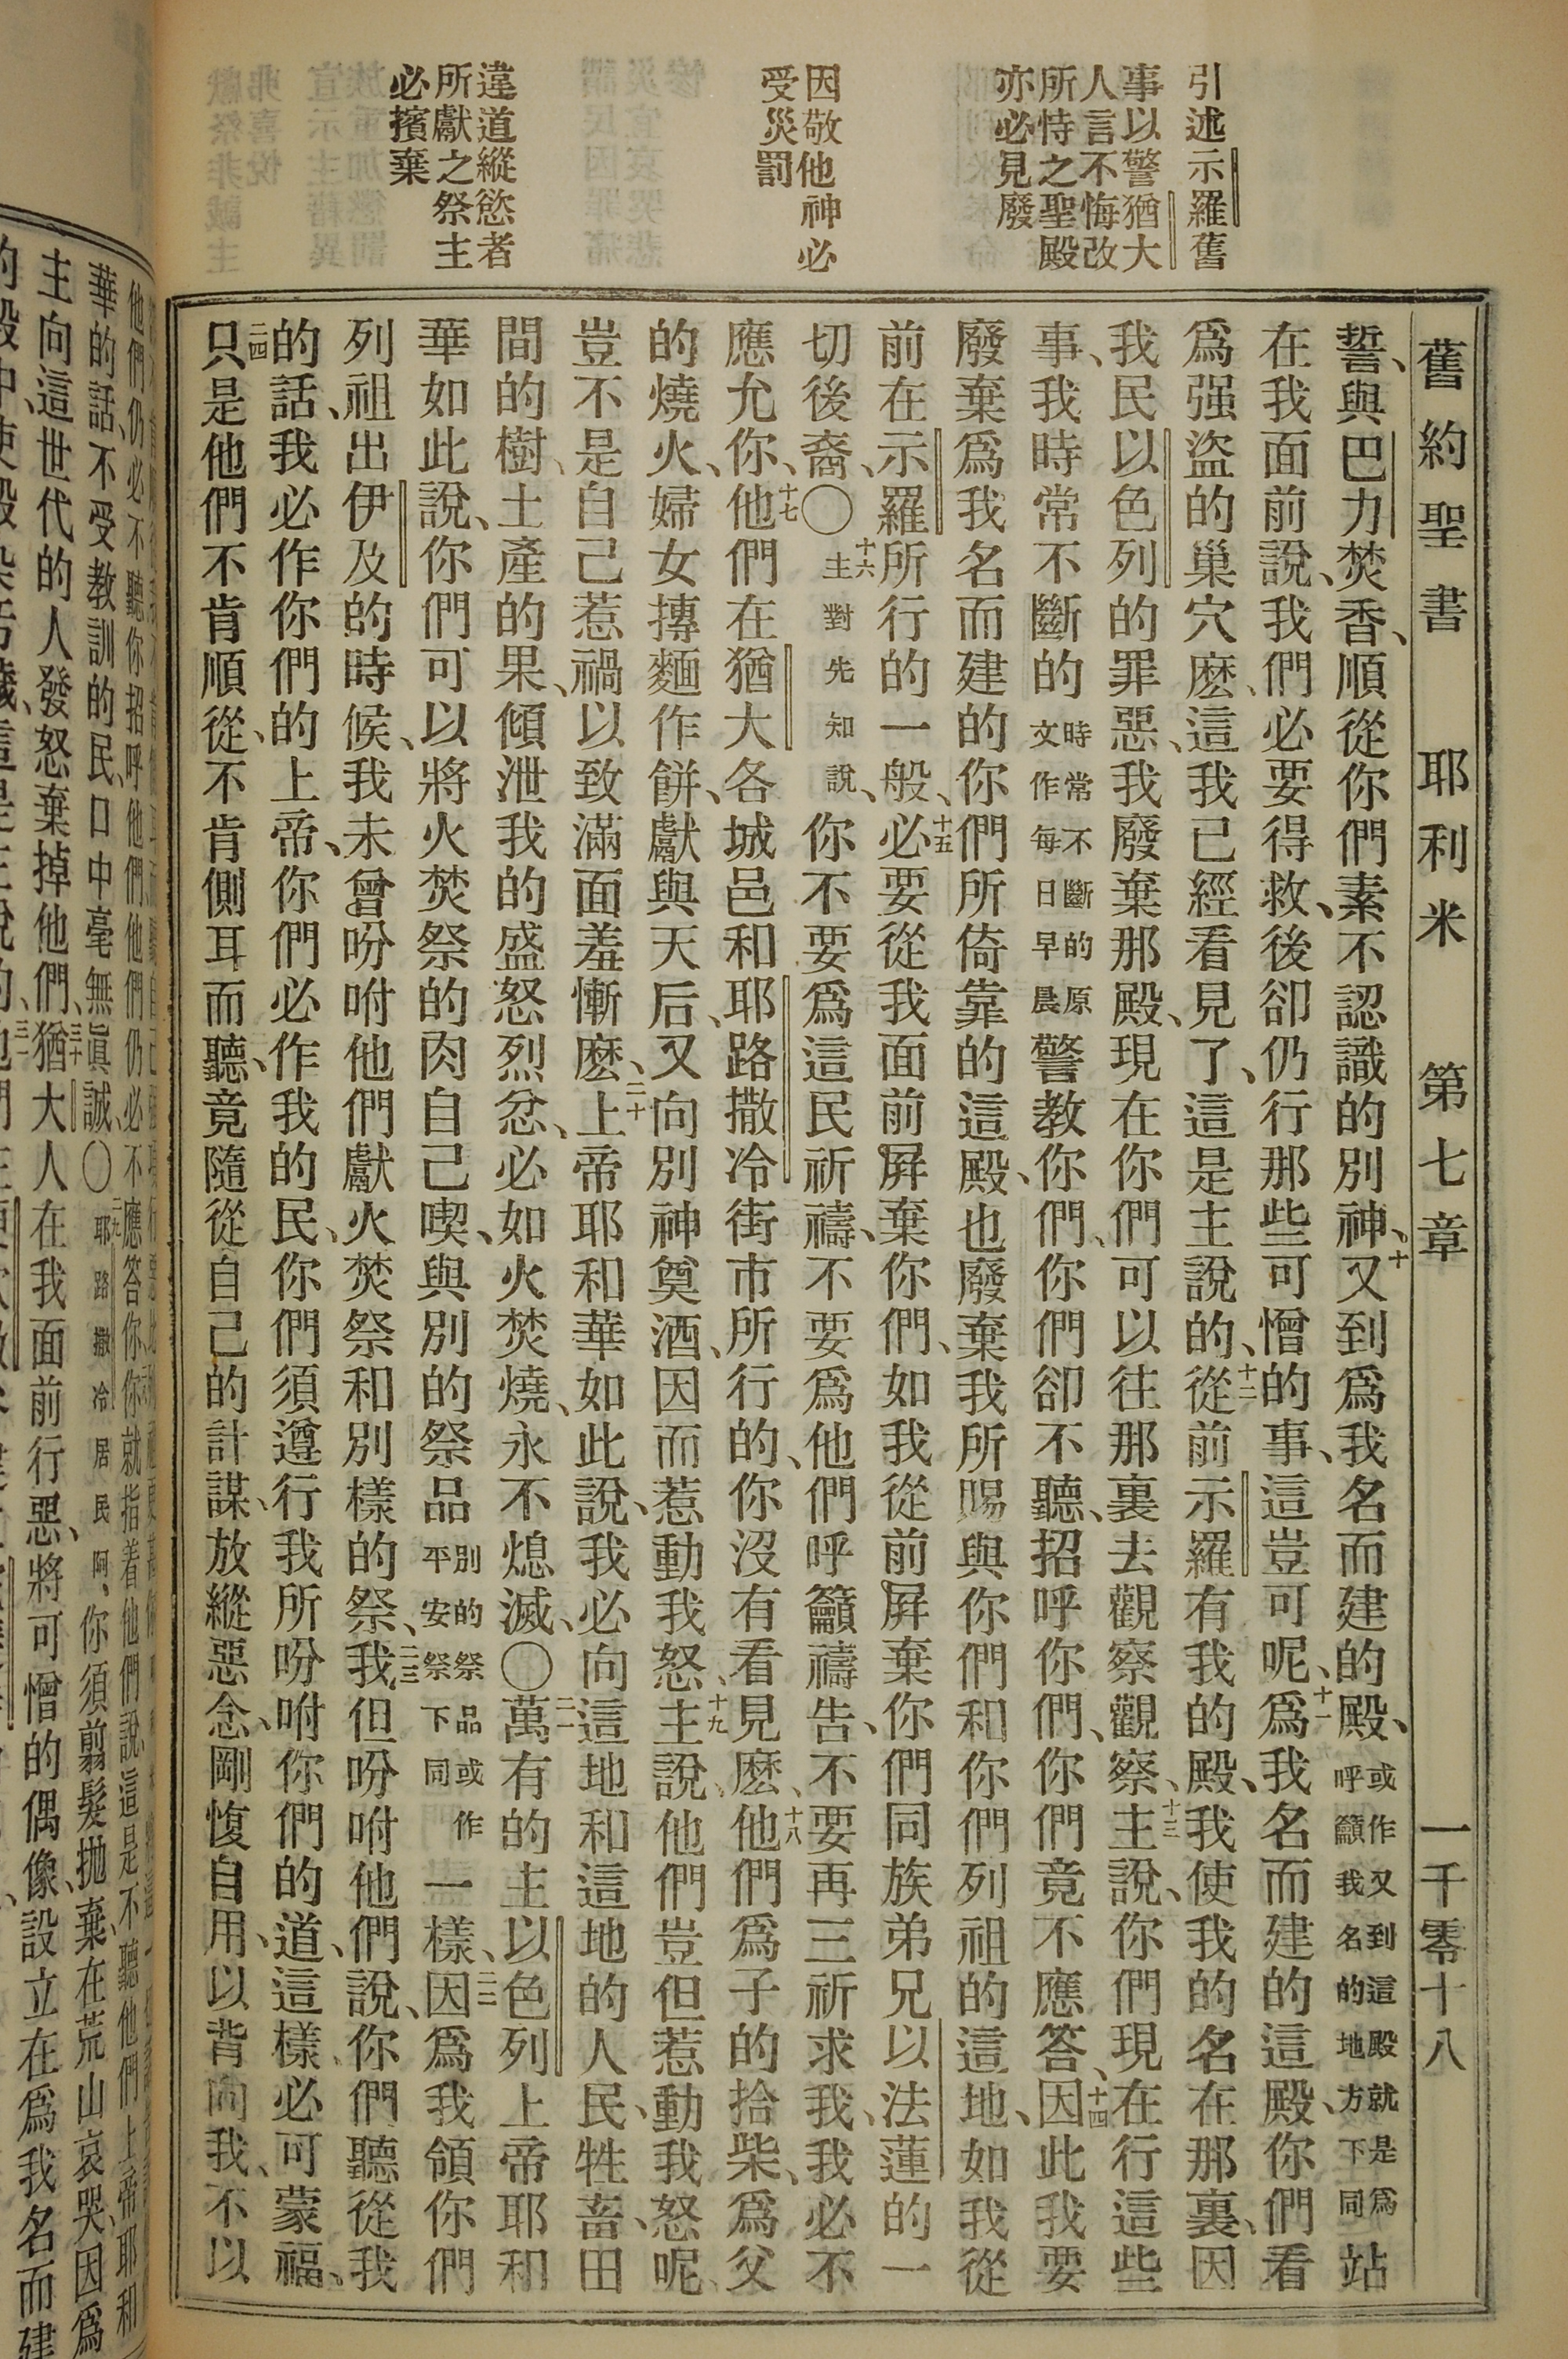 引述示羅舊
事以警猶大
人言不悔改
所恃之聖殿
亦必見廢
因敬他神必
受災罰
違道縱慾者
所獻之祭主
必擯棄
舊約聖書 耶利米 第七章 一千零十八
誓、與巴力焚香、順從你們素不認識的別神、十又到爲我名而建的殿、或作又到這殿就是爲呼籲我名的地方下同站
在我面前說、我們必要得救、後卻仍行那些可憎的事、這豈可呢、十一爲我名而建的這殿、你們看
爲强盜的巢穴麽、這我已經看見了、這是主說的、十二從前示羅有我的殿、我使我的名在那裏、因
我民以色列的罪惡、我廢棄那殿、現在你們可以往那裏去觀察觀察、十三主說、你們現在行這些
事、我時常不斷的時常不斷的原文作每日早晨警教你們、你們卻不聽、招呼你們、你們竟不應答、十四因此我要
廢棄爲我名而建的你們所倚靠的這殿、也廢棄我所賜與你們和你們列祖的這地、如我從
前在示羅所行的一般、十五必要從我面前屏棄你們、如我從前屏棄你們同族弟兄以法蓮的一
切後裔、〇十六主對先知說、你不要爲這民祈禱、不要爲他們呼籲禱告、不要再三祈求我、我必不
應允你、十七他們在猶大各城邑和耶路撒冷街市所行的、你沒有看見麽、十八他們爲子的拾柴、爲父
的燒火、婦女摶麵作餅、獻與天后、又向別神奠酒、因而惹動我怒、十九主說、他們豈但惹動我怒呢、
豈不是自己惹禍以致滿面羞慚麽、二十上帝耶和華如此說、我必向這地和這地的人民、牲畜、田
間的樹、土產的果、傾泄我的盛怒烈忿、必如火焚燒、永不熄滅、〇二一萬有的主以色列上帝耶和
華如此說、你們可以將火焚祭的肉自己喫、與別的祭品別的祭品或作平安祭下同一樣、二二因爲我領你們
列祖出伊及的時候、我未曾吩咐他們獻火焚祭和別樣的祭、二三我但吩咐他們說、你們聽從我
的話、我必作你們的上帝、你們必作我的民、你們須遵行我所吩咐你們的道、這樣必可蒙福、
二四只是他們不肯順從、不肯側耳而聽、竟隨從自己的計謀、放縱惡念、剛愎自用、以背向我、不以
他們仍必不聽你招呼他們他們仍必不應答你、你就指着他們說、這是不聽他們上帝耶和
華的話、不受教訓的民、口中毫無眞誠、〇二九耶路撒冷居民阿、你須翦髮抛棄、在荒山哀哭、因爲
主向這世代的人發怒棄掉他們、三十猶大人在我面前行惡、將可憎的偶像、設立在爲我名而建